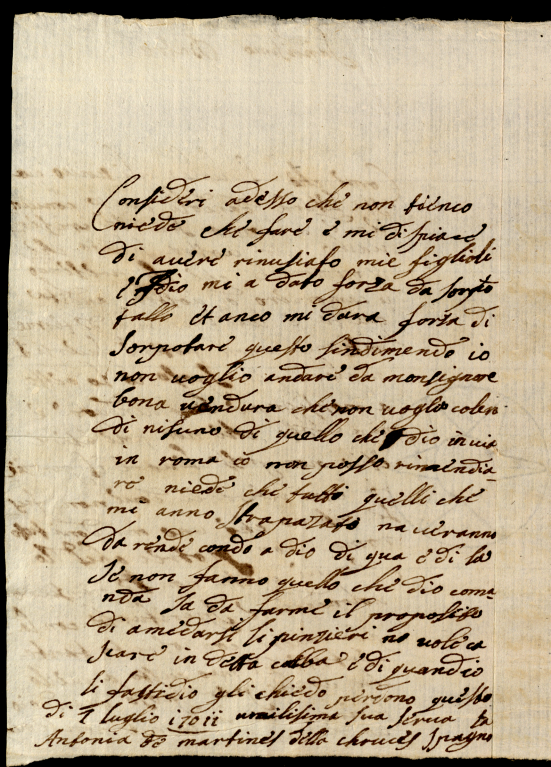 Consideri adesso che non tienco
niede che fare e mi dispiace
di avere rinusiato mie figlioli
e Idio mi a dato forza da
tallo et anco mi dara forza di
sorpotare questo sindimendo io
non voglio andare da monsignore
bona vendura che non voglio
di nisuno di quello che dio invia
in roma io non posso rimendia
re niede che tutti quelli che
mi anno strapazato n averanno
da rende condo a dio di qua e di la
se non fanno quello che dio coma
nda Ia da farme il proposito
di amedarsi li pinzieri no vole
stare in detta colba e di quandio
li fastidio gli chiedo perdono questo
di luglio umilisima sua serva
Antonia de martines della chruces spagno